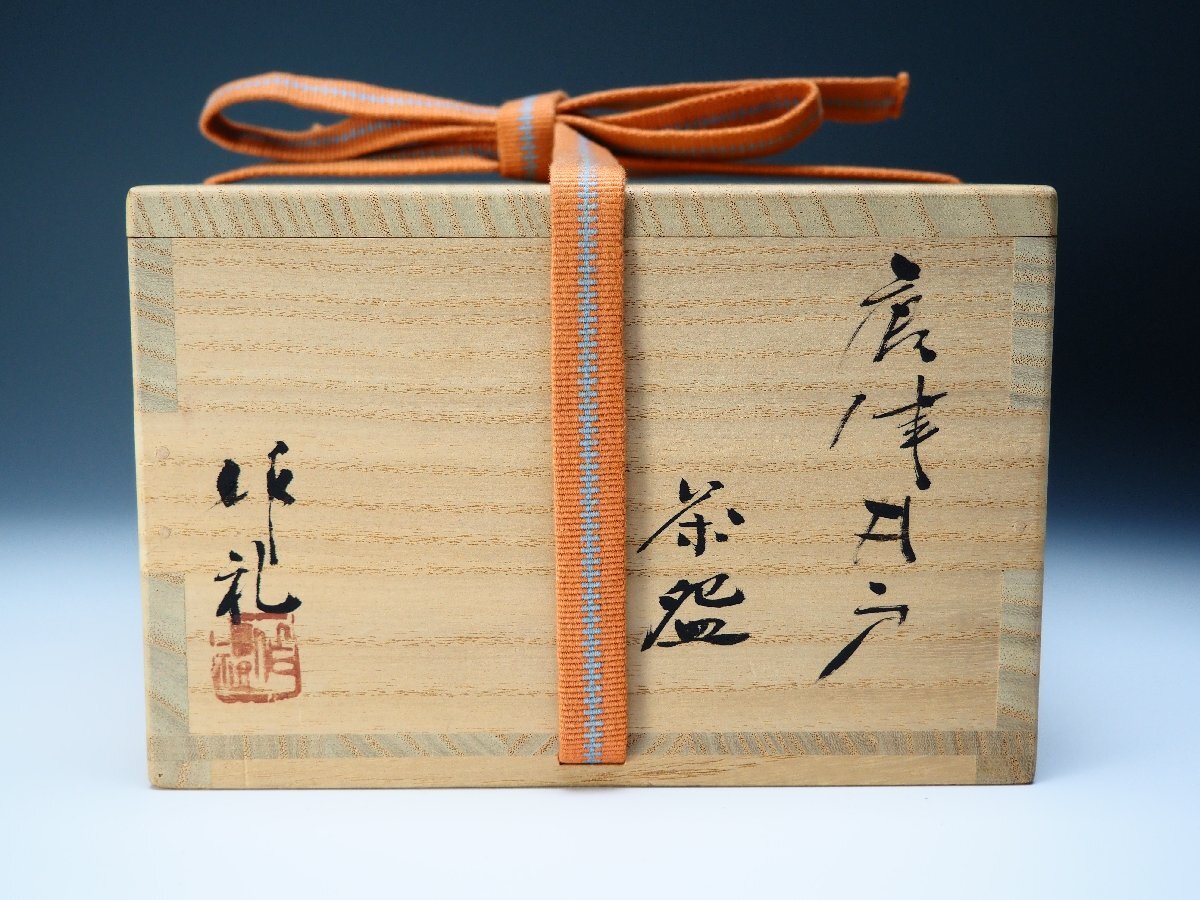 唐津井戸
茶盌
作礼